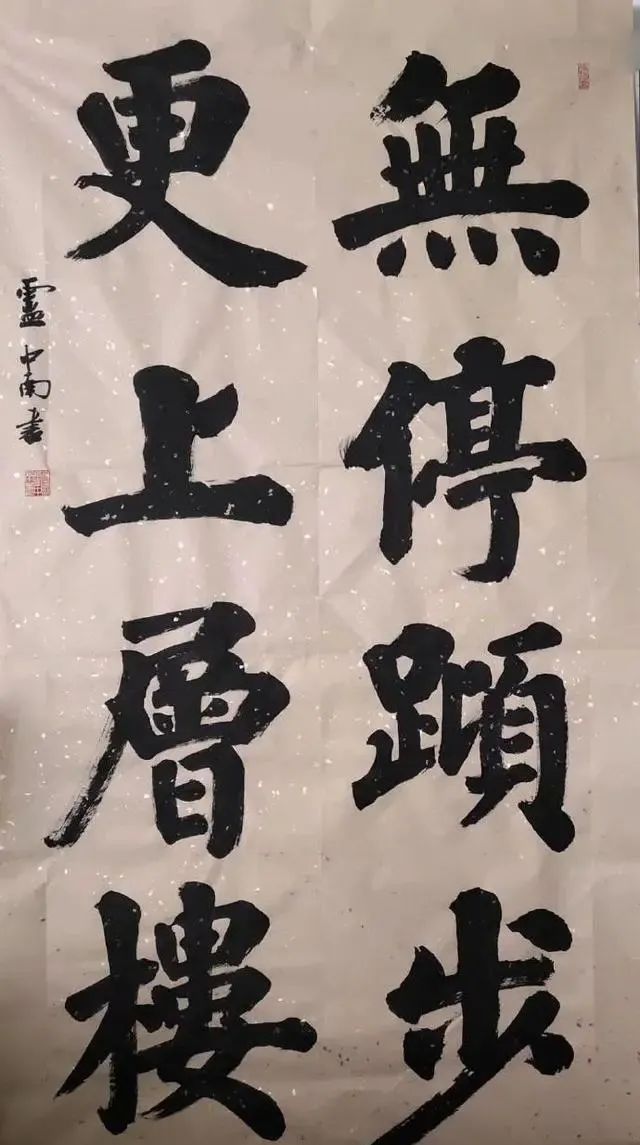 無停蹞步
更上層樓
霊中南書